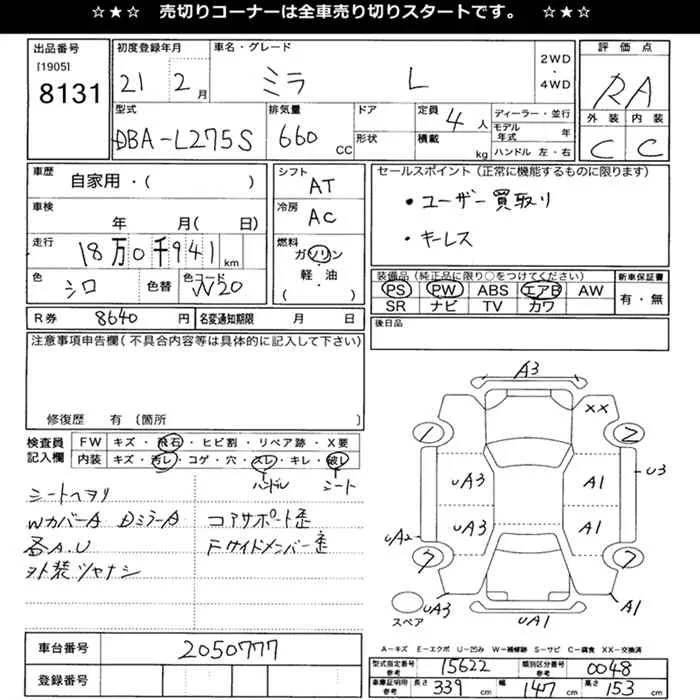 ☆★☆ 売切りコーナーは全車売り切りスタートです。 ☆★☆
出品番号 [1905] 8131
初度登録年月 21 2月
車名・グレード ミラ L
2WD・4WD
評価点 RA
外装 C 内装 C
型式 DBA-L275S
排気量 660 CC
ドア 形状
定員 4人
積載 kg
ディーラー・並行
モデル年式 年
ハンドル 左・右
車歴 自家用・( )
シフト AT
車検 年 月( 日)
冷房 AC
走行 18万0千941 km
燃料 ガソリン・軽・油 ( )
色 シロ 色替 色コード W20
R券 8640 円 名変通知期限 月 日
セールスポイント(正常に機能するものに限ります)
・ユーザー買取り
・キーレス
装備品(純正品に限り○をつけてください) 新車保証書
PS PW ABS エアB AW 有・無
SR ナビ TV カワ
後日品
注意事項申告欄(不具合内容等は具体的に記入して下さい)
修復歴 有 〔箇所 〕
検査員記入欄
FW キズ・飛石・ヒビ割・リペア跡・X要
内装 キズ・汚レ・コゲ・穴・スレ・キレ・破レ
ハンドル シート
シートヘタリ
WカバーA DミラーA コアサポート歪
各A.U Fサイドメンバー歪
外装ツヤナシ
A3
XX
1 2
UA3 A1 U3
UA2 UA3 A1
7 7
スペア UA3 UA1 A1
A-キズ E-エクボ U-凹み W-補修跡 S-サビ C-腐食 XX-交換済
車台番号 2050777
登録番号
型式指定番号 参考 15622 類別区分番号 参考 0048
車庫証明用 参考 長さ 339 cm 幅 147 cm 高さ 153 cm